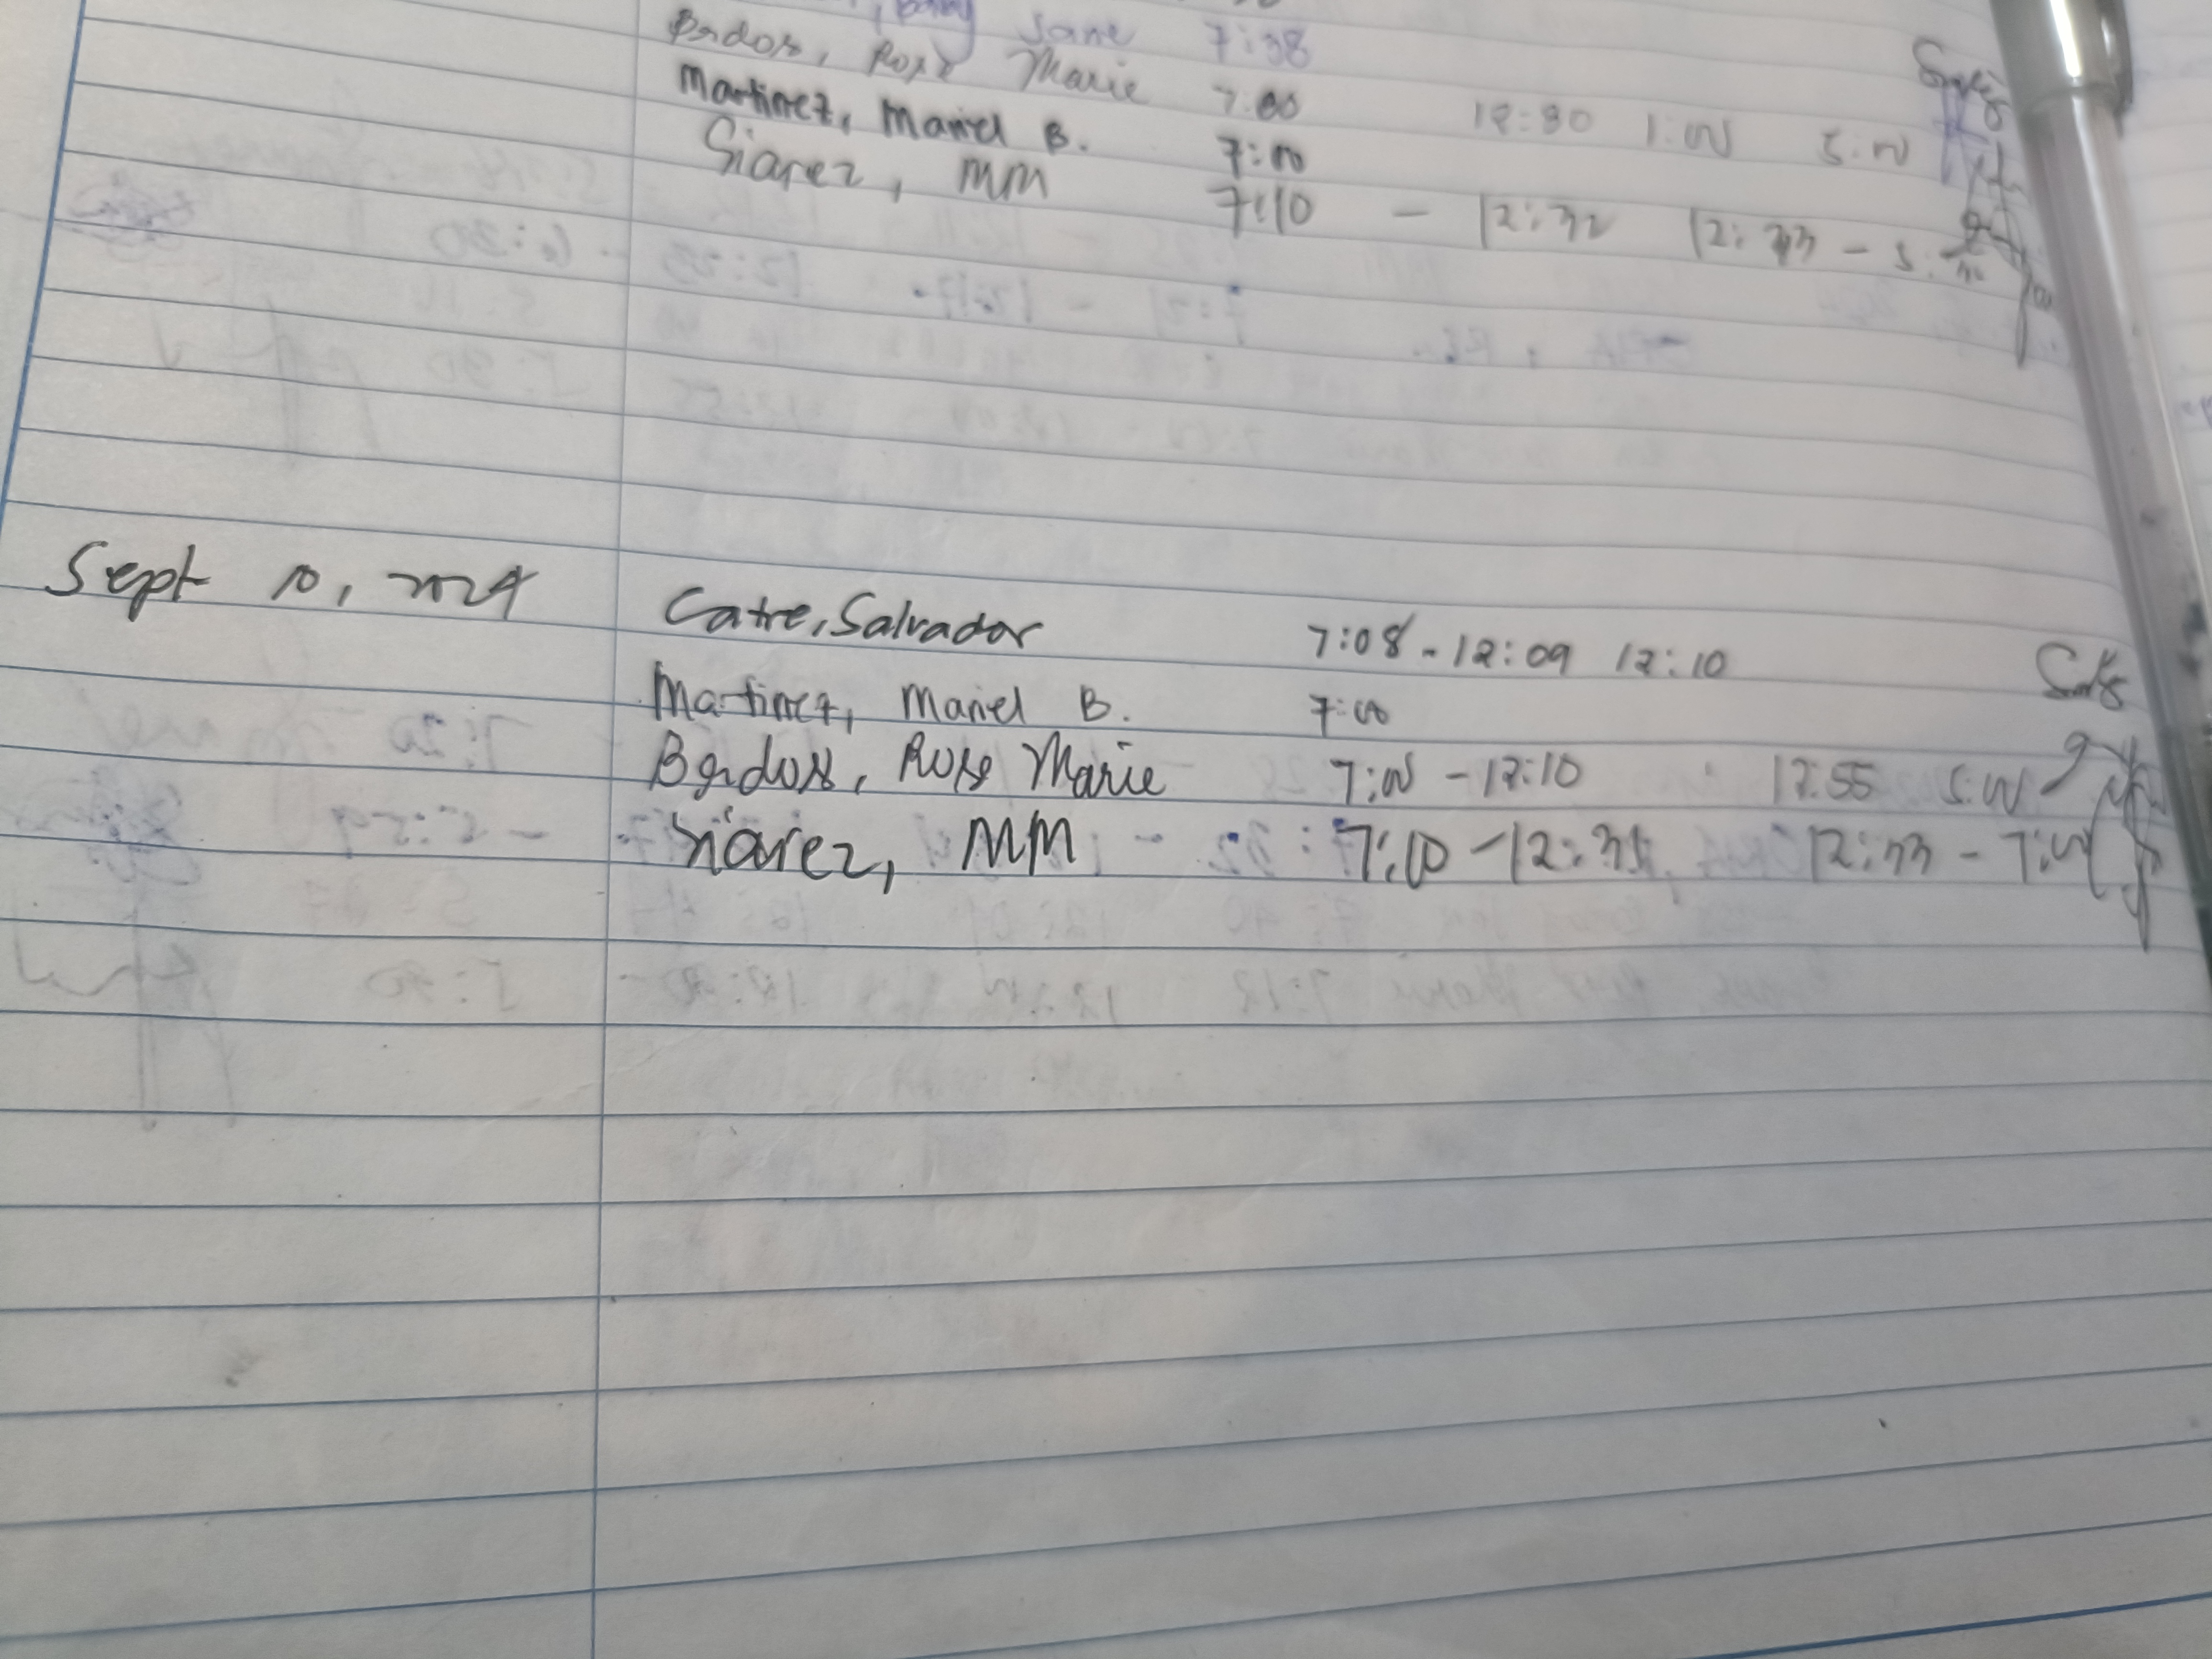 Jane 7:38
Marie 7:00 12:30 1:00 5:00
Martinez, Mariel B. 7:00
Siarez, MM 7:10 - 12:32 12:33 - 5:
Sept 10, 2024
Catre, Salvador 7:08 - 12:09 12:10
Martinez, Mariel B. 7:00
Rose Marie 7:00 - 12:10 12:55 5:00
Siarez, MM 7:10 - 12:31 12:33 - 7:00